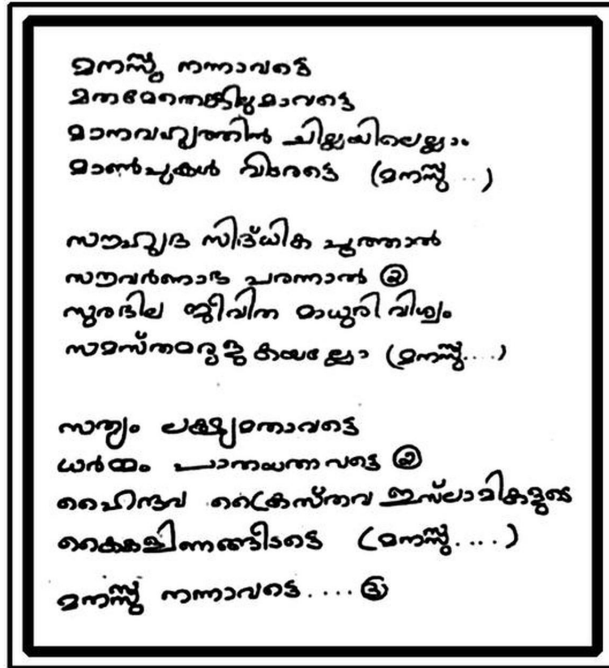 മനസ്സു നന്നാവട്ടെ
മതമേതെങ്കിലുമാവട്ടെ
മാനവഹൃത്തിൻ ചില്ലയിലെല്ലാം
മാൺപുകൾ വിടരട്ടെ (മനസ്സു ...)
സൗഹൃദ സിദ്ധിക പൂത്താൽ
സൗവർണാഭ പരന്നാൽ ②
സുരഭില ജീവിത മാധുരി വിശ്വം
സമസ്തമരുളുകയല്ലോ (മനസ്സു....)
സത്യം ലക്ഷ്യമതാവട്ടെ
ധർമ്മം പാതയതാവട്ടെ ②
ഹൈന്ദവ ക്രൈസ്തവ ഇസ്ലാമികളുടെ
കൈകളിണങ്ങീടട്ടെ (മനസ്സു....)
മനസ്സു നന്നാവട്ടെ.... ③